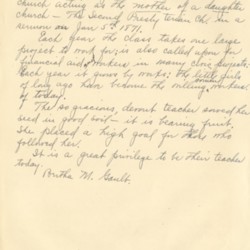 church acting as the mother of a daughter
church – The Second Presbyterian Ch. in a
sermon on Jan 5th 1871.
Each year the class takes one large
project to work for, is also called upon for
financial aid & workers in many civic projects.
Each year it grows by works; the little girls
of long ago have become the willing workers
of today.
The so gracious, devout teacher sowed her
seed in good soil – it is bearing fruit.
She placed a high goal for those who
followed her.
It is a great privilege to be their teacher
today.
Bertha M. Gault.